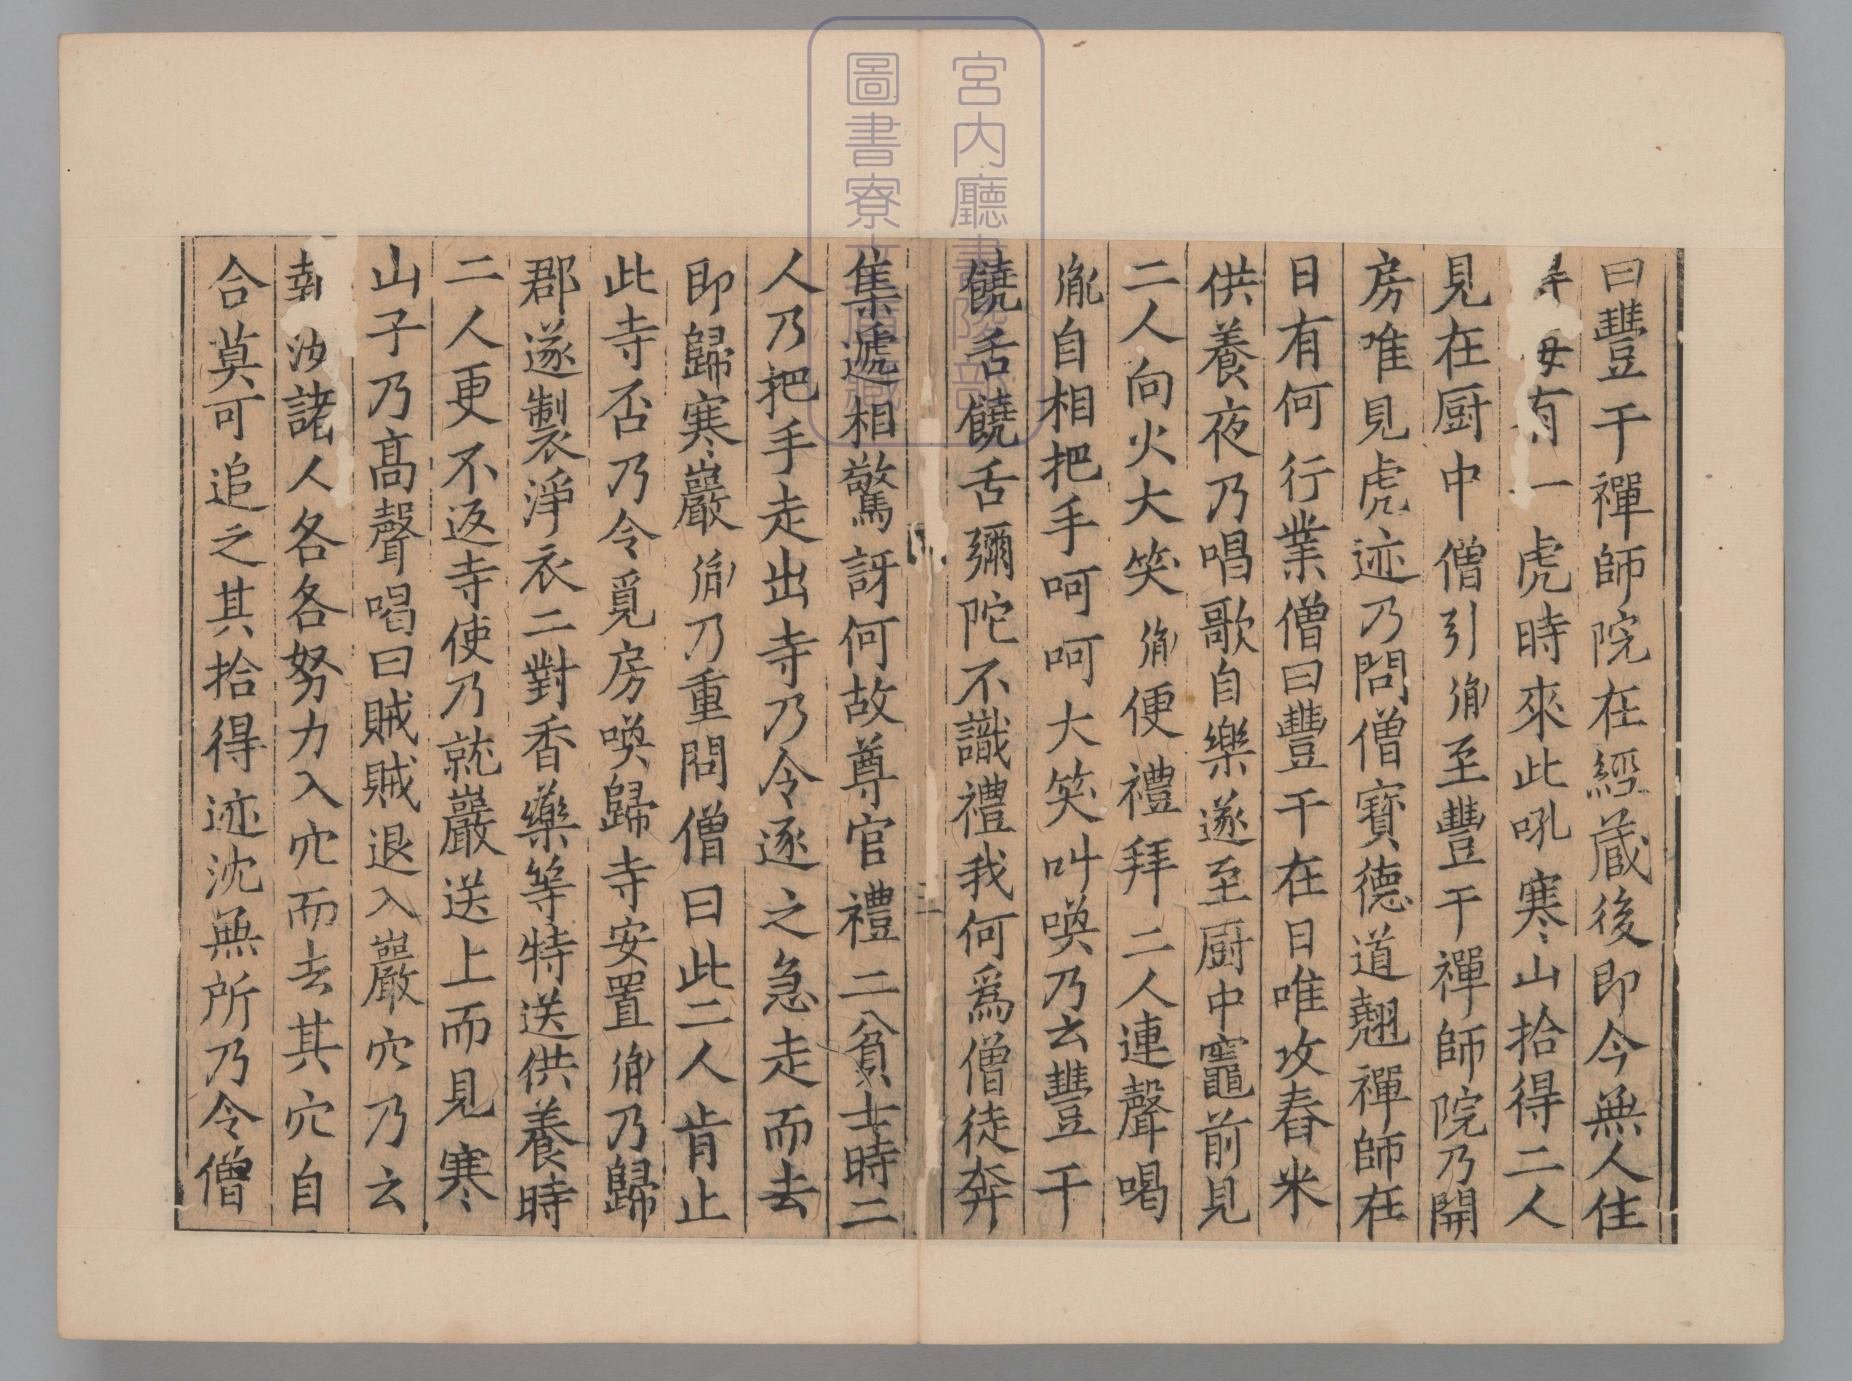 曰豐干禪師院在經藏後即今無人住
有一虎時來此吼寒山拾得二人
見在厨中僧引胤至豐干禪師院乃開
房唯見虎迹乃問僧寶德道翹禪師在
日有何行業僧曰豐干在日唯攻舂米
供養夜乃唱歌自樂遂至厨中竈前見
二人向火大笑胤便禮拜二人連聲喝
胤自相把手呵呵大笑叫喚乃云豐干
饒舌饒舌彌陀不識禮我何爲僧徒奔
集遞相驚訝何故尊官禮二貧士時二
人乃把手走出寺乃令逐之急走而去
即歸寒巖胤乃重問僧曰此二人肯止
此寺否乃令覓房喚歸寺安置胤乃歸
郡遂製淨衣二對香藥等特送供養時
二人更不返寺使乃就巖送上而見寒
山子乃高聲喝曰賊賊退入巖穴乃云
報汝諸人各各努力入穴而去其穴自
合莫可追之其拾得迹沈無所乃令僧
宮内廳書陵部
圖書寮文庫藏